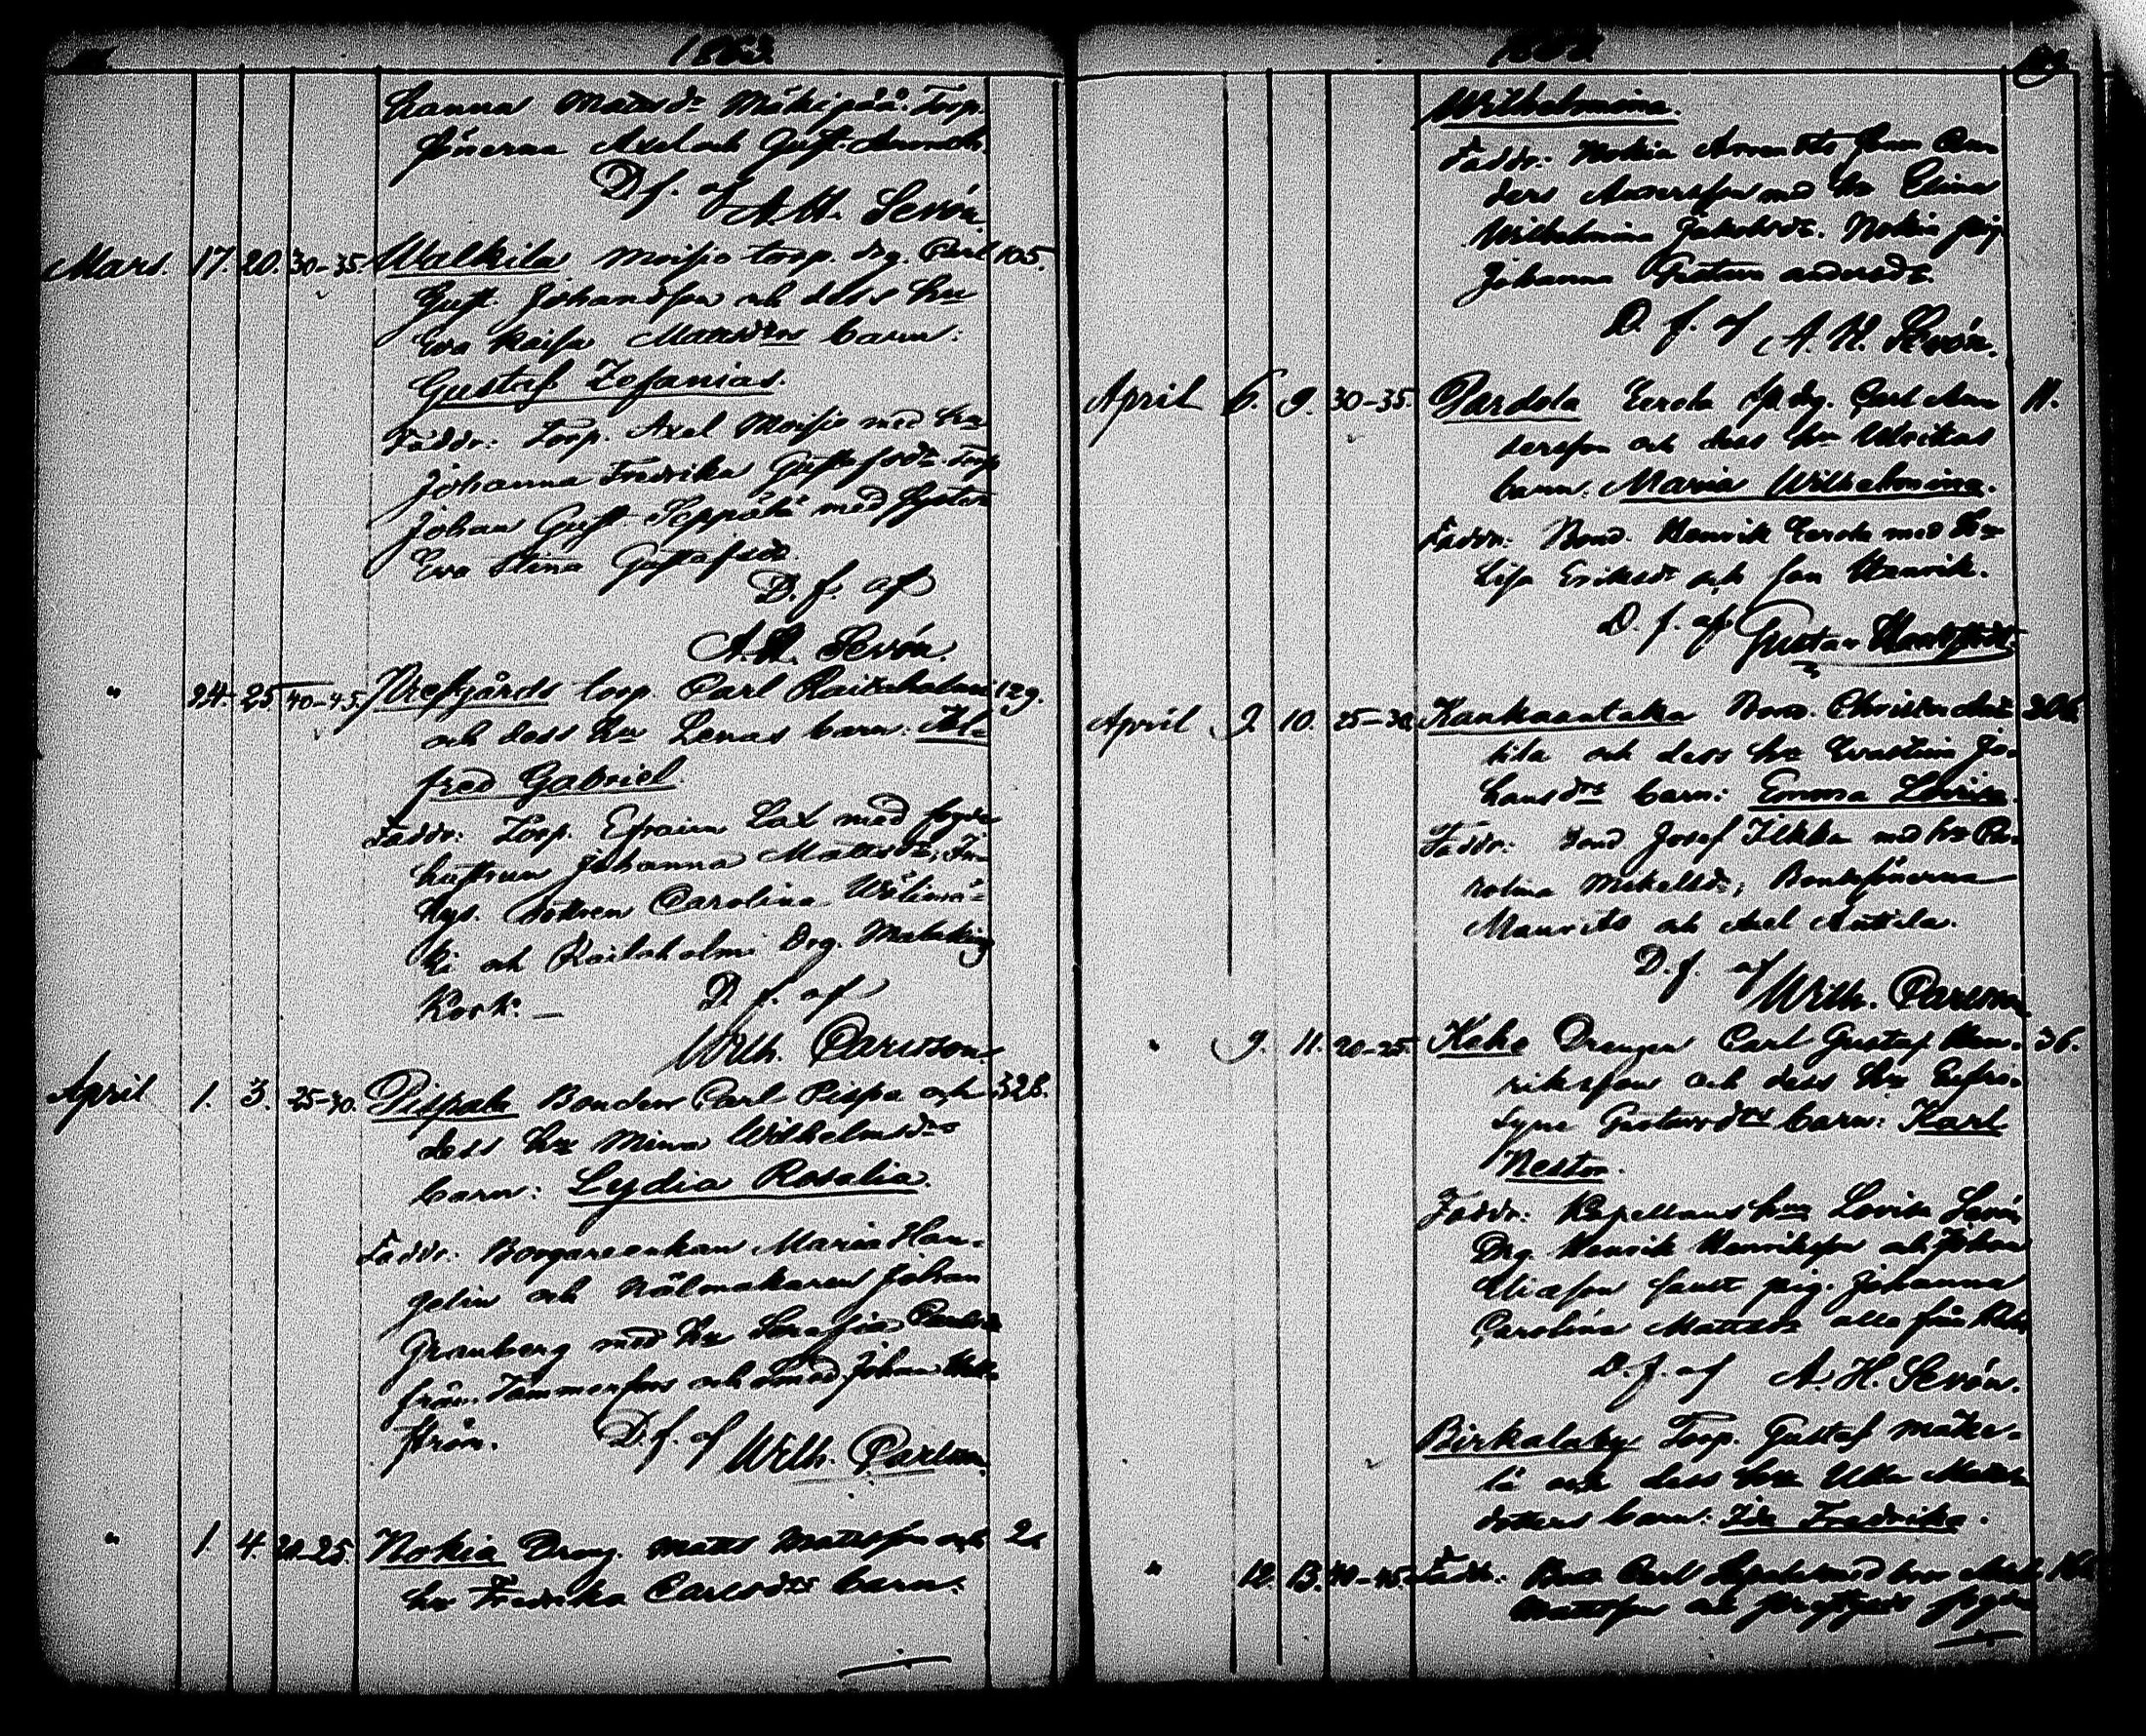 1863.
Hanna Mattsdr Mäkipää. Torp.
sönerna Axel och Gust.
D. f. af A. H. Sevón.
Mars. 17. 20. 30-35. Walkila Moisio torp. drg. Carl 105.
Gust. Johansson och dess hu
Eva Kaisa Mattsdrs barn:
Gustaf Zefanias.
Faddr: Torp. Axel Moisio med hu
Johanna Fredrika Gustafsdr. Torp
Johan Gust. Seppälä med syster
Eva Stina Gustafsdr.
D. f. af
A. H. Sevón.
" 24. 25. 40-45. torp. Carl Raitaholmi 129.
och dess hu Lenas barn: Al-
fred Gabriel.
Faddr: Torp. Efraim Lax med
hustrun Johanna Mattsdr, In-
hys. dottren Carolina Wälimä-
ki och Raitaholmi drg. Malakias
Kork. — D. f. af
Wilh. Carlsson.
April 1. 3. 25-30. Pispala Bonden Carl Pispa och 328.
dess hu Mina Wilhelmsdrs
barn: Lydia Rosalia.
Faddr: Borgareenkan Maria Han-
gelin och Nålmakaren Johan
Granberg med hu Serafia Carlsdr
från Tammerfors och Smed. Johan
ström. D. f. af Wilh. Carlsson.
" 1. 4. 20-25. Nokia Dreng. Matts Mattsson och 2.
hu Fredrika Carlsdrs barn:
1863. 119.
Wilhelmina.
Faddr: Nokia An
ders Andersson med hu Elina
Wilhelmina Jakobsdr. Nokia pig.
Johanna Gustava Andersdr.
D. f. af A. H. Sevón.
April 6. 9. 30-35. Pardola Eerola sp. dg. Carl An 11.
dersson och dess hu Ulrikas
barn: Maria Wilhelmina.
Faddr: Bond. Henrik Eerola med hu
Lisa Eriksdr och son Henrik.
D. f. af Gustav
April 9. 10. 25-30. Kankaantaka Bond. Christer An 306.
tila och dess hu Ernstina Jo-
hansdrs barn: Emma Lovisa.
Faddr: Bond Josef Ilkka med hu Ca-
rolina Mikelsdr; Bondesönerna
Maurits och Axel Anttila.
D. f. af Wilh. Carlsson
" 9. 11. 20-25. Keho Drengen Carl Gustaf Hen- 36.
riksson och dess hu Eufro-
syne Gustavsdrs barn: Karl
Nestor.
Faddr: Kapellans hu Lovisa Sevón
Drg. Henrik Henriksson och Johan
Eliasson samt pig. Johanna
Carolina Mattsdr alla från
D. f. af A. H. Sevón.
Birkalaby Torp. Gustaf Mäke-
lä och dess hu Ulla Matts
dotters barn: Ida Fredrika.
" 12. 13. 40-45. Faddr: Carl med hu
Mattsson och